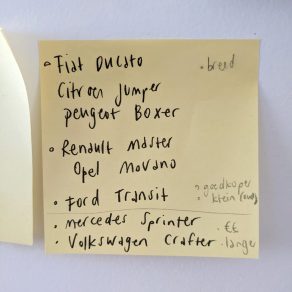 • Fiat Ducato • breed
Citroen Jumper
Peugeot Boxer
• Renault Master
Opel Movano
• Ford Transit • goedkoper
• klein
• Mercedes Sprinter • €€
• Volkswagen Crafter • lange